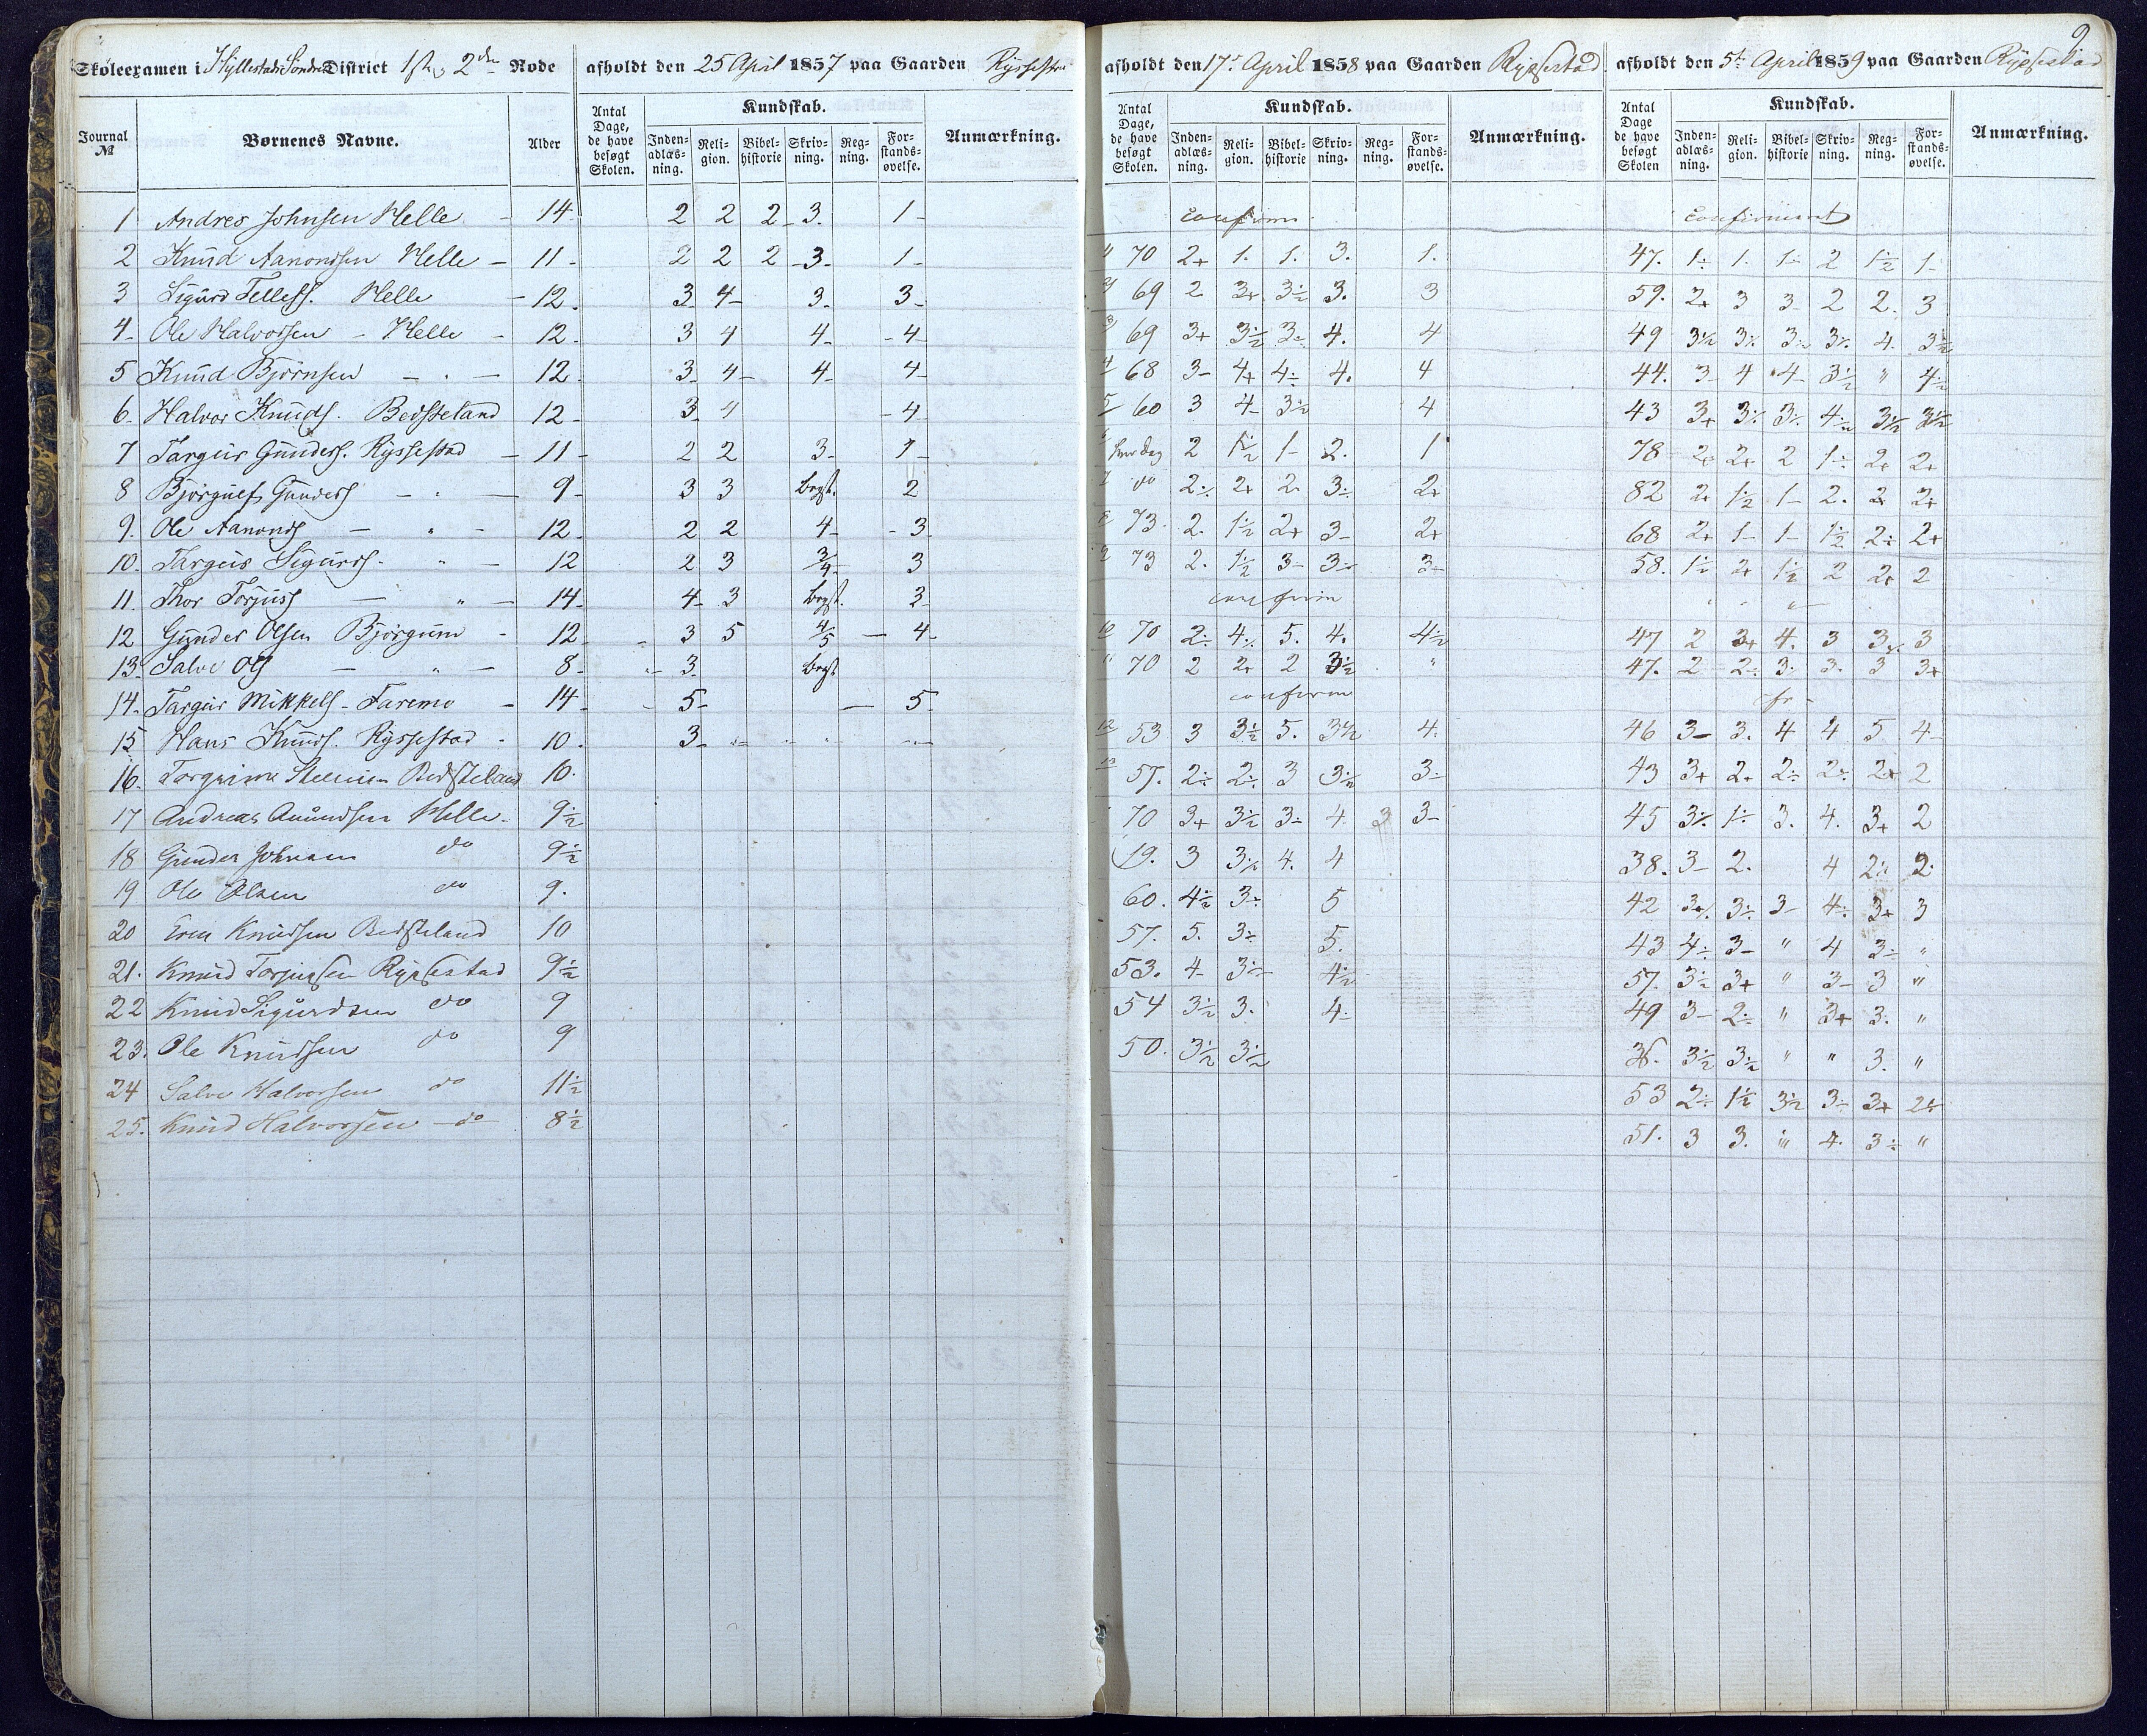 9
Skoleexamen i Hyllestads Søndre District 1ste og 2den Rode afholdt den 25 April 1857 paa Gaarden Rysstad afholdt den 17de April 1858 paa Gaarden Rysestad afholdt den 5te April 1859 paa Gaarden Rysestad
Journal № Børnenes Navne. Alder Antal Dage, de have besøgt Skolen. Kundskab. Inden-adlæs-ning. Reli-gion. Bibel-historie Skriv-ning. Reg-ning. For-stands-øvelse. Anmærkning. Antal Dage, de have besøgt Skolen. Kundskab. Inden-adlæs-ning. Reli-gion. Bibel-historie Skriv-ning. Reg-ning. For-stands-øvelse. Anmærkning. Antal Dage de have besøgt Skolen Kundskab. Inden-adlæs-ning. Reli-gion. Bibel-historie Skriv-ning. Reg-ning. For-stands-øvelse. Anmærkning.
1 Andres Johnsen Helle - 14 2 2 2 3. 1 confirm confirmeret
2 Knud Aanondsen Helle - 11 - 2 2 2 - 3 - 1 - 70 2+ 1. 1. 3. 1. 47. 1÷ 1. 1÷ 2 1½ 1-
3 Sigurd Tellefs. Helle - 12. 3 4 - 3. 3 - 69 2 3+ 3½ 3. 3 59. 2+ 3 3 2 2. 3
4 - Ole Halvorsen - Helle - 12. 3 4 4 - - 4 - 69 3+ 3½ 3÷ 4. 4 49 3½ 3÷ 3÷ 3÷ 4. 3½
5 Knud Bjørnsen - . - 12. 3 4 - 4 - 4 - 68 3- 4+ 4÷ 4. 4 44. 3- 4 4- 3½ " 4½
6. Halvor Knuds. Bedsteland 12 - 3 4 - 4 - 60 3 4- 3½ 4 43 3+ 3÷ 3÷ 4½ 3½ 3½
7 Targeir Gunders. Ryssestad - 11 - 2 2 3 - 1 - hver dag 2 1½ 1- 2. 1 78 2+ 2+ 2 1÷ 2+ 2+
8 Bjørgulf Gunders - . - 9 - 3 3 begt. 2 do 2÷ 2+ 2 3÷ 2+ 82 2+ 1½ 1- 2. 2 2+
9. Ole Aanonds - " - 12. 2 2 4 - - 3 73. 2. 1½ 2+ 3- 2+ 68 2+ 1- 1- 1½ 2÷ 2+
10. Targeis Sigurds. " - 12 2 3 3/4 3 73 2. 1½ 3- 3÷ 3- 58. 1½ 2+ 1½ 2 2+ 2
11. Thor Torjuss - " - 14 - 4 3 begt. 3 confirm " " "
12 Gunder Olsen Bjørgum - 12 - 3 5 4/5 - 4 - 70 2÷ 4÷ 5. 4. 4½ 47 2 3+ 4. 3 3 3
13. Salve Ols - " - 8 - 3. begt 70 2 2+ 2 3½ " 47. 2 2÷ 3÷ 3. 3 3+
14. Targeir Mikkels - Faremo - 14 - 5 - - 5 - confirm
15 Hans Knuds. Ryssestad - 10. 3 - 53 3 3½ 5. 3½ 4. 46 3- 3. 4 4 5 4-
16. Torgrim Bedsteland 10. 57. 2÷ 2÷ 3 3½ 3÷ 43 3+ 2+ 2÷ 2÷ 2+ 2
17 Andreas Anundsen Helle. 9½ 70 3+ 3½ 3÷ 4 3 3- 45 3÷ 1÷ 3. 4. 3+ 2
18 Gunder Johnsen do 9½ 19. 3 3½ 4. 4 38. 3- 2. 4 2÷ 2
19 Ole Olsen do 9. 60. 4½ 3÷ 5 42 3÷ 3÷ 3- 4÷ 3+ 3
20 Even Knudsen Bedsteland 10 57. 5. 3÷ 5. 43 4÷ 3- " 4 3÷ "
21. Knud Torjusen Rysestad 9½ 53. 4- 3½ 4½ 57. 3½ 3+ " 3- 3 "
22 Knud Sigurdsen do 9 54 3½ 3. 4- 49 3- 2÷ " 3+ 3. "
23. Ole Knudsen do 9 50. 3½ 3½ 36. 3½ 3½ " " 3. "
24 Salve Halvorsen do 11½ 53 2÷ 1½ 3½ 3÷ 3+ 2÷
25. Knud Halvorsen do 8½ 51. 3 3. "" 4. 3÷ "